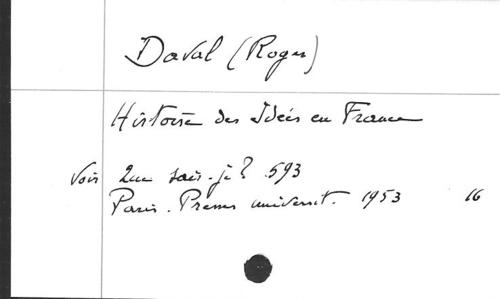 Daval (Roger)
Histoire des Idées en France
Voir Que sais-je? 593
Paris. Presses universit. 1953 16